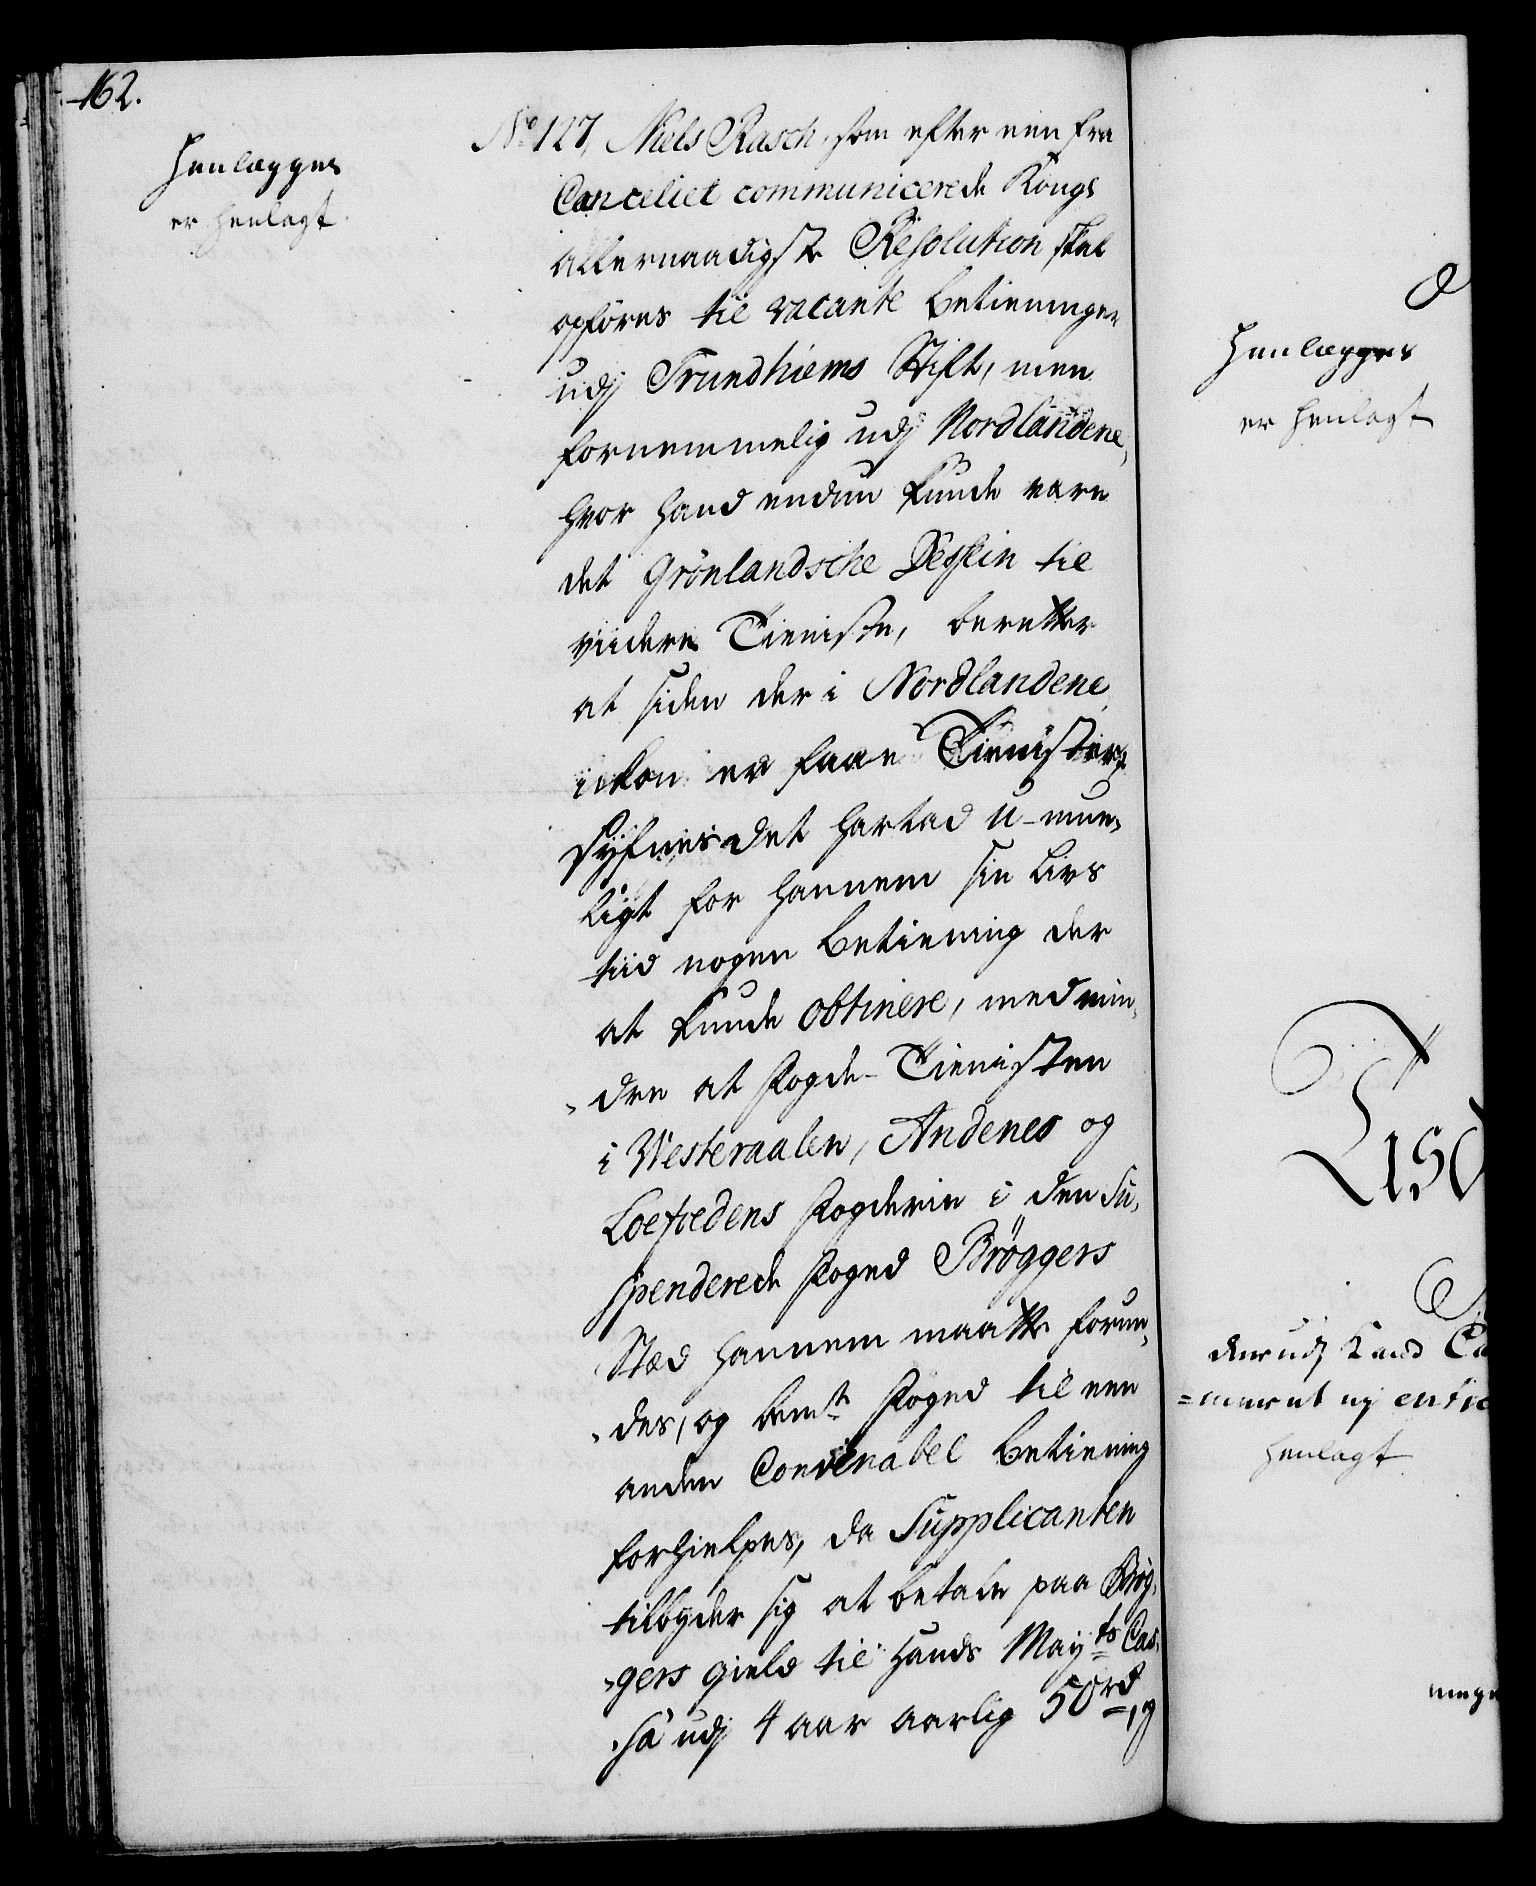 162.
Henlægges
er henlagt
No 127, Niels Rasch, som efter een fra
Canceliet communicerede Kongl
allernaadigste Resolution skal
opföres til vacante betieninger
udj Trundhiems Stift, men
fornemmelig udj Nordlandene,
hvor hand endnu kunde være
det Grönlandsche Dessein til
viidere Tieniste, beretter
at siden der i Nordlandene
ickon er faae Tienister,
syfnis det hartad u-mue,
ligt for hannem sin livs
tiid nogen betiening der
at kunde obtinere, med min,
dre at Fogde-Tienisten
i Westeraalen, Andenes og
Loefoedens Fogderie i den Su,
spenderede Foged Bröggers
Stæd hannem maatte forun,
des, og bemte Foged til een
anden Convenabel betiening
forhielpes, da Supplicanten
tilbyder sig at betale paa Brög,
gers gield til Hands Mayts Cas,
sa udj 4 aar aarlig 50 rd, og
Henlægges
er henlagt
henlagt